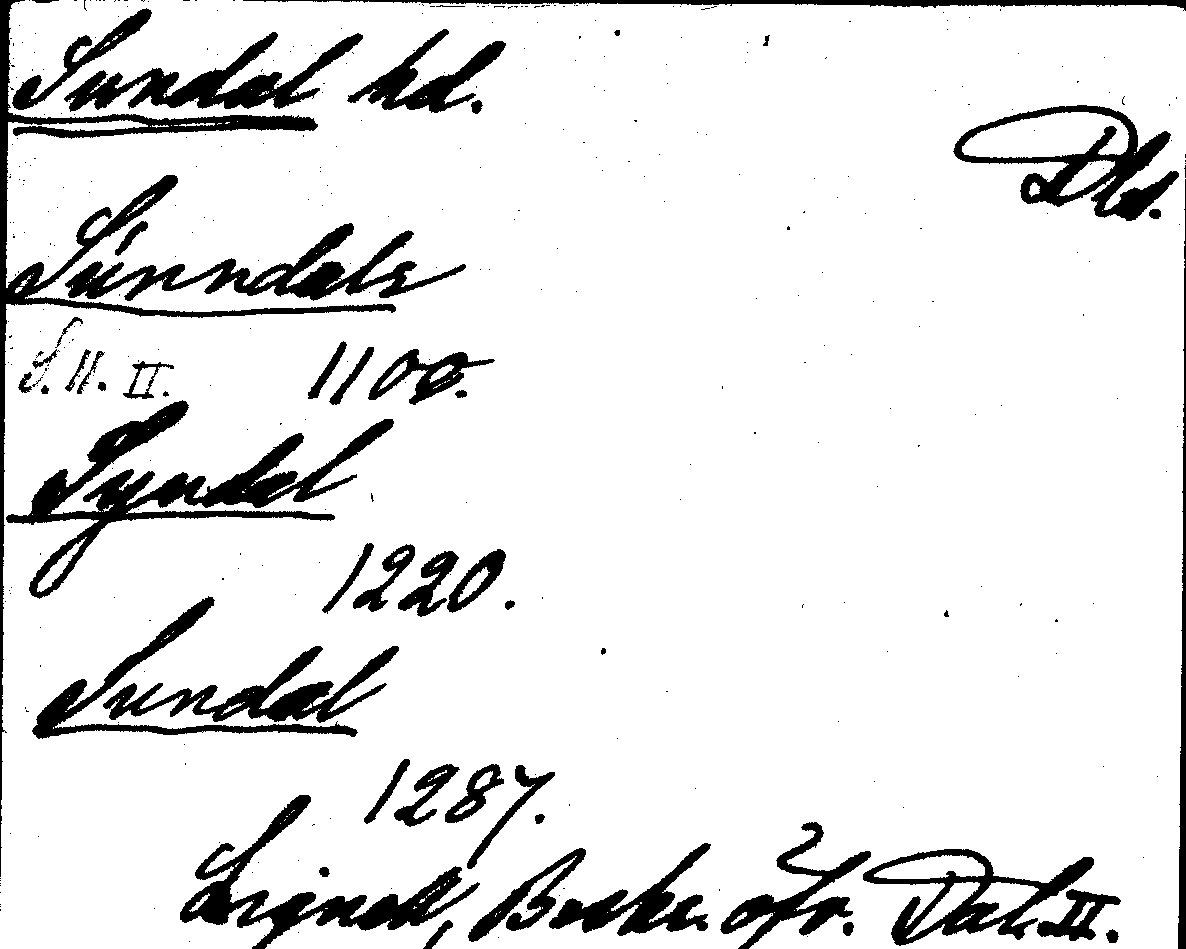 Sundal hd.
Dls.
Súnndals
S. 11. II. 1100.
Syndal
1220.
Sundal
1287.
Lignell, Beskr. ofr. Dal. II.